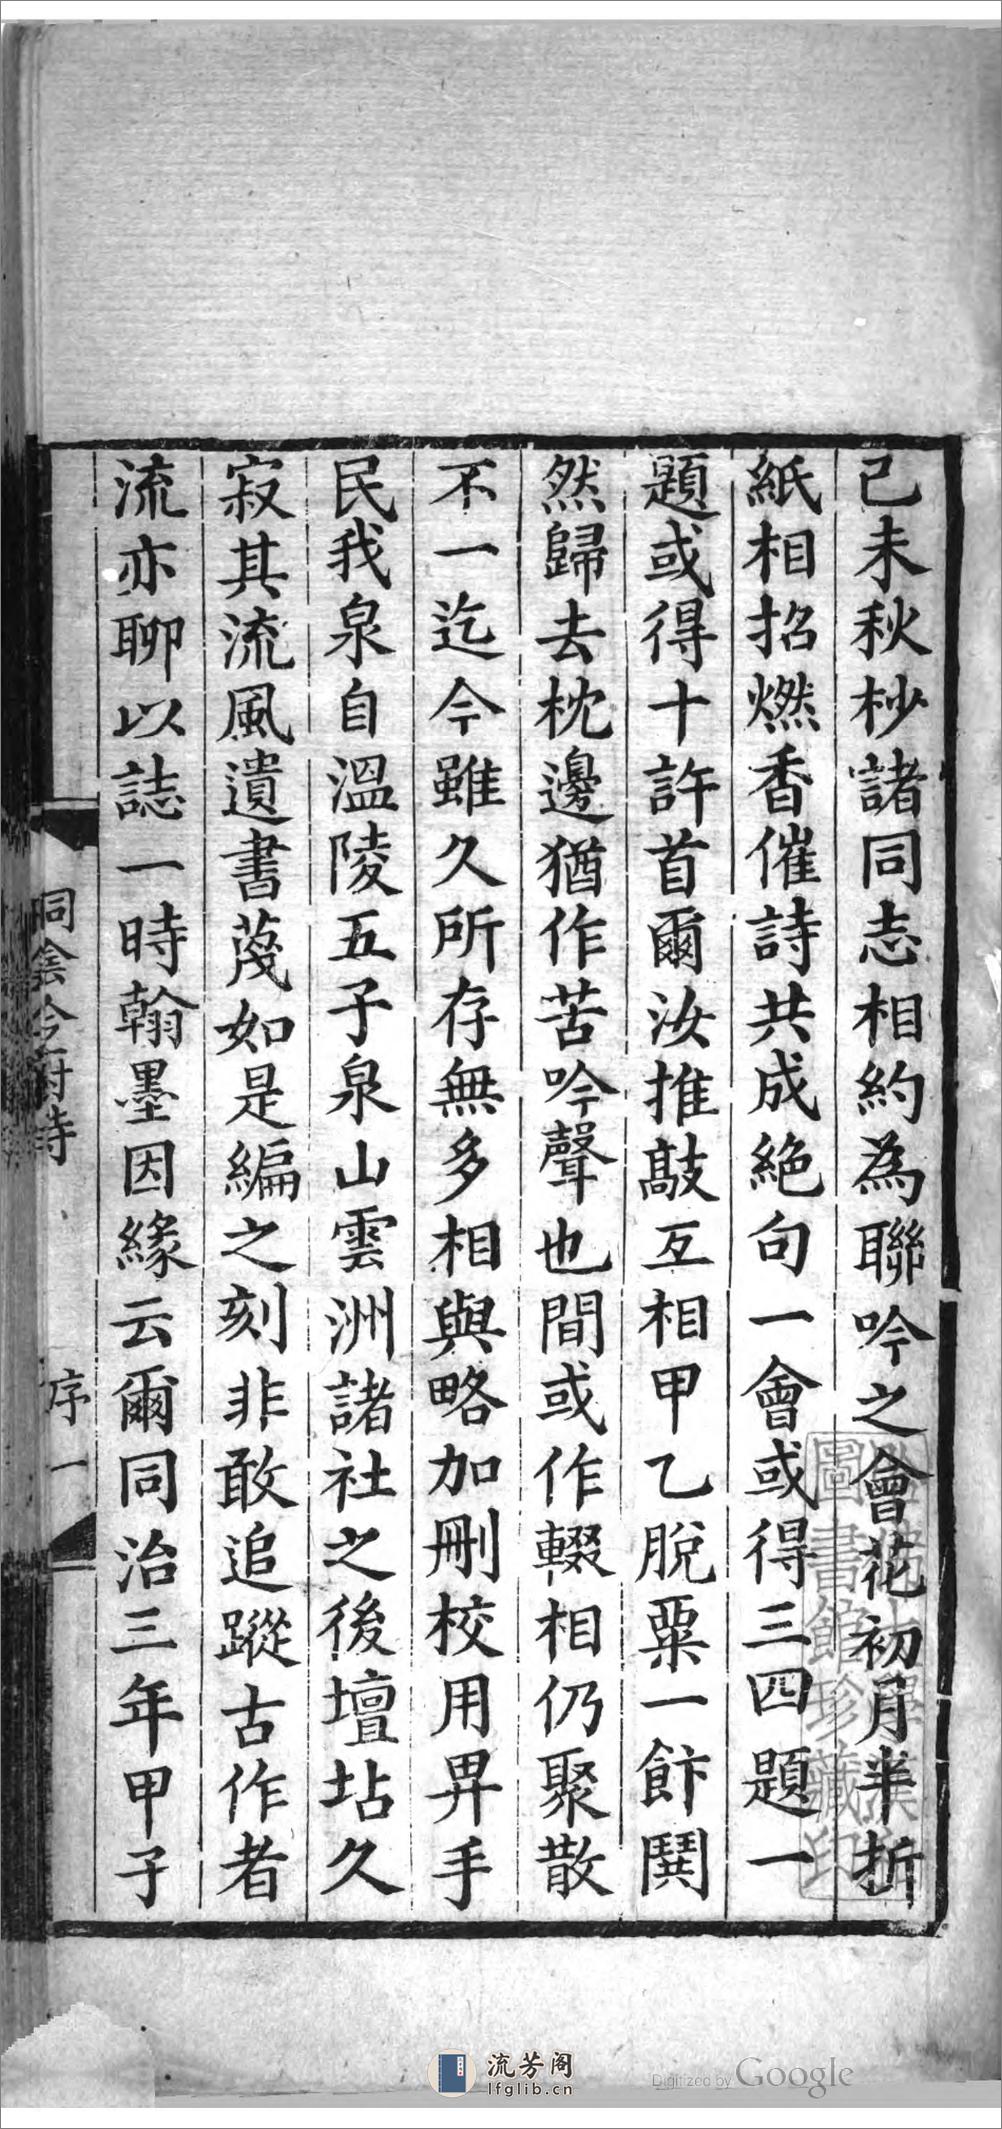 己未秋杪諸同志相約為聯吟之會花初月半折
紙相招燃香催詩共成絕句一會或得三四題一
題或得十許首爾汝推敲互相甲乙脫粟一飰鬦
然歸去枕邊猶作苦吟聲也間或作輟相仍聚散
不一迄今雖久所存無多相與略加刪校用畀手
民我泉自溫陵五子泉山雲洲諸社之後壇坫久
寂其流風遺書蔑如是編之刻非敢追蹤古作者
流亦聊以誌一時翰墨因緣云爾同治三年甲子
序 一
圖書館珍藏印
流芳阁
lfglib.cn
Digitized by Google